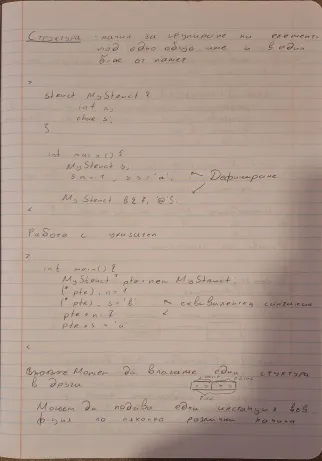 Структура - начин за групиране на елементи
под едно общо име и в един
блок от памет
"
struct MyStruct {
int n;
char s;
}
int main() {
MyStruct b;
b.n = 1, b.s = 'a';
Дефиниране
MyStruct b { 1, '@' };
"
Работа с указатели
"
int main() {
MyStruct* ptr = new MyStruct;
(*ptr).n = 1
(*ptr).s = 'b'
еквивалентен синтаксис
ptr->n = 1
ptr->s = 'a'
"
Можем да влагаме една структура
в друга
Можем да подава една инстанция във
по няколко различни начина